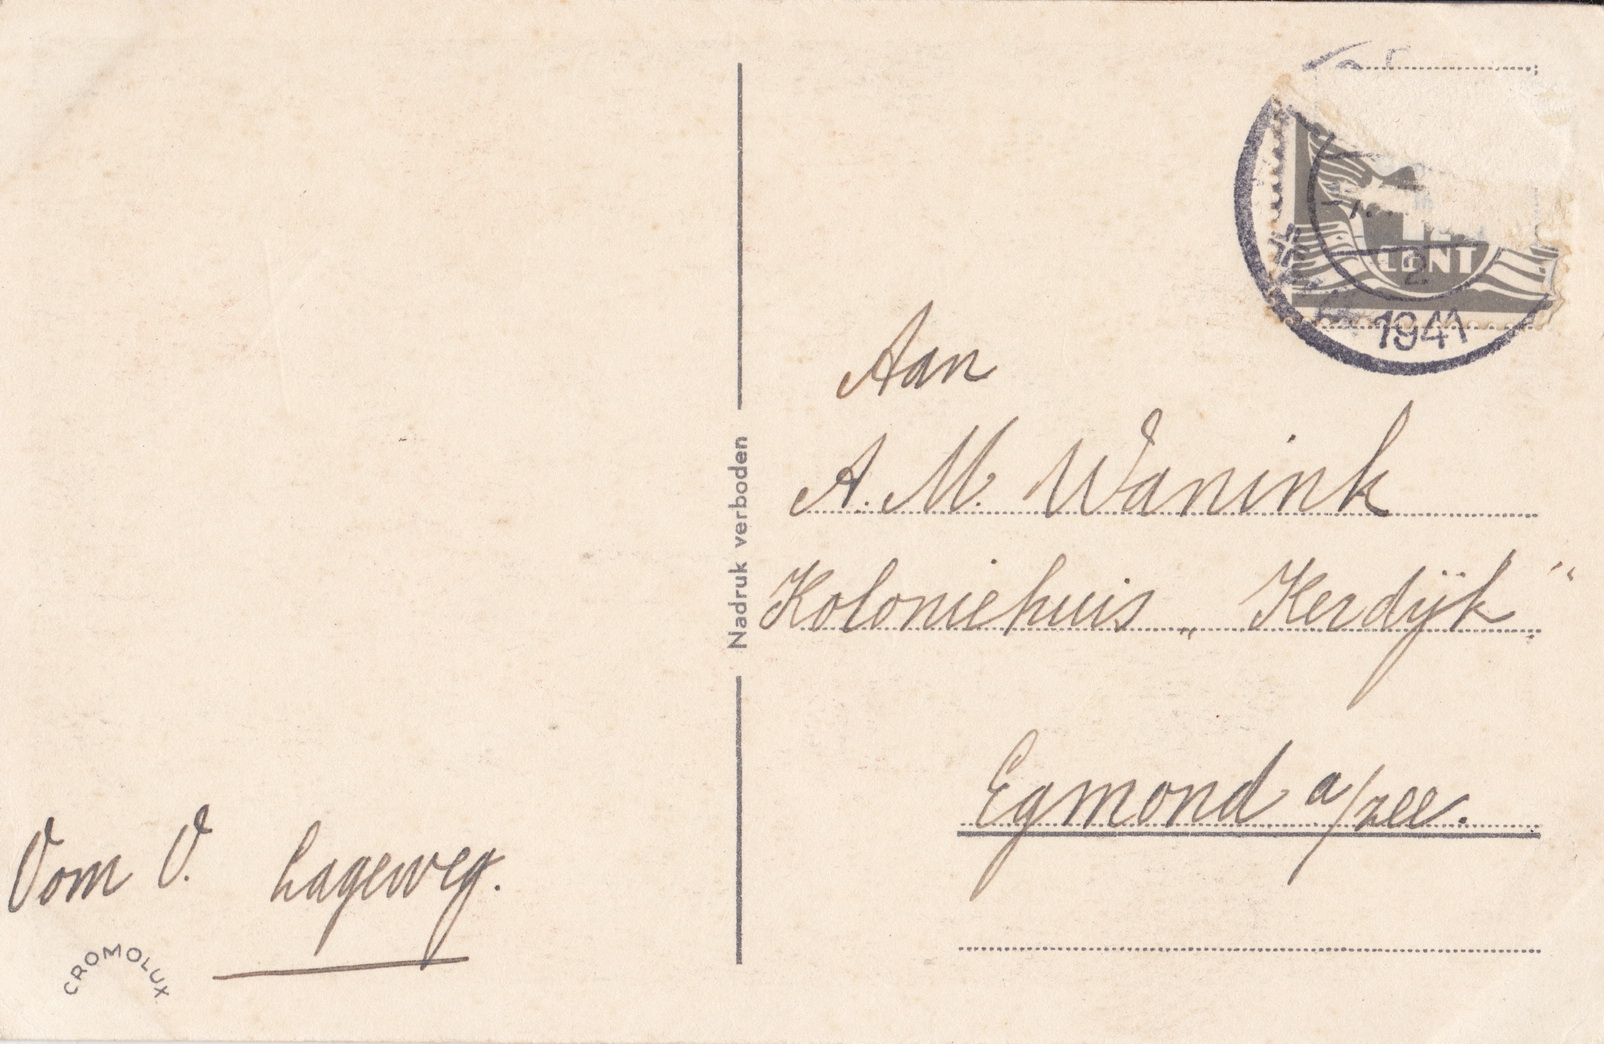 CENT
2.
1941
Aan
A. M. Wanink
Koloniehuis „Kerdijk”
Egmond a/zee.
Nadruk verboden
Oom O. Lageweg.
CROMOLUX